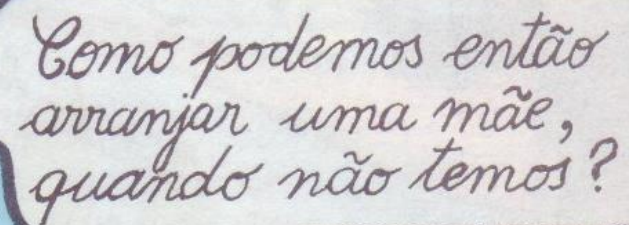 Como podemos então
arranjar uma mãe,
quando não temos?